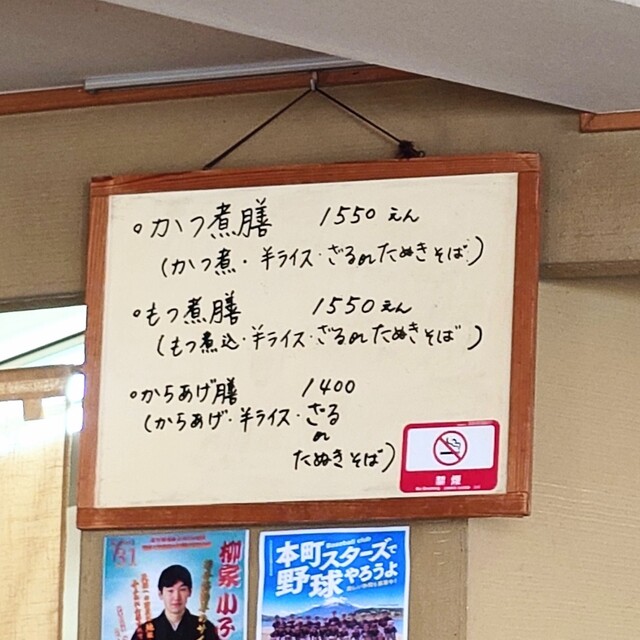 ・かつ煮膳 1550えん
(かつ煮・半ライス・ざるorたぬきそば)
・もつ煮膳 1550えん
(もつ煮込・半ライス・ざるorたぬきそば)
・からあげ膳 1400
(からあげ・半ライス・ざる
or
たぬきそば)
禁煙
7/31
柳家小
Baseball club
本町スターズで
野球やろうよ